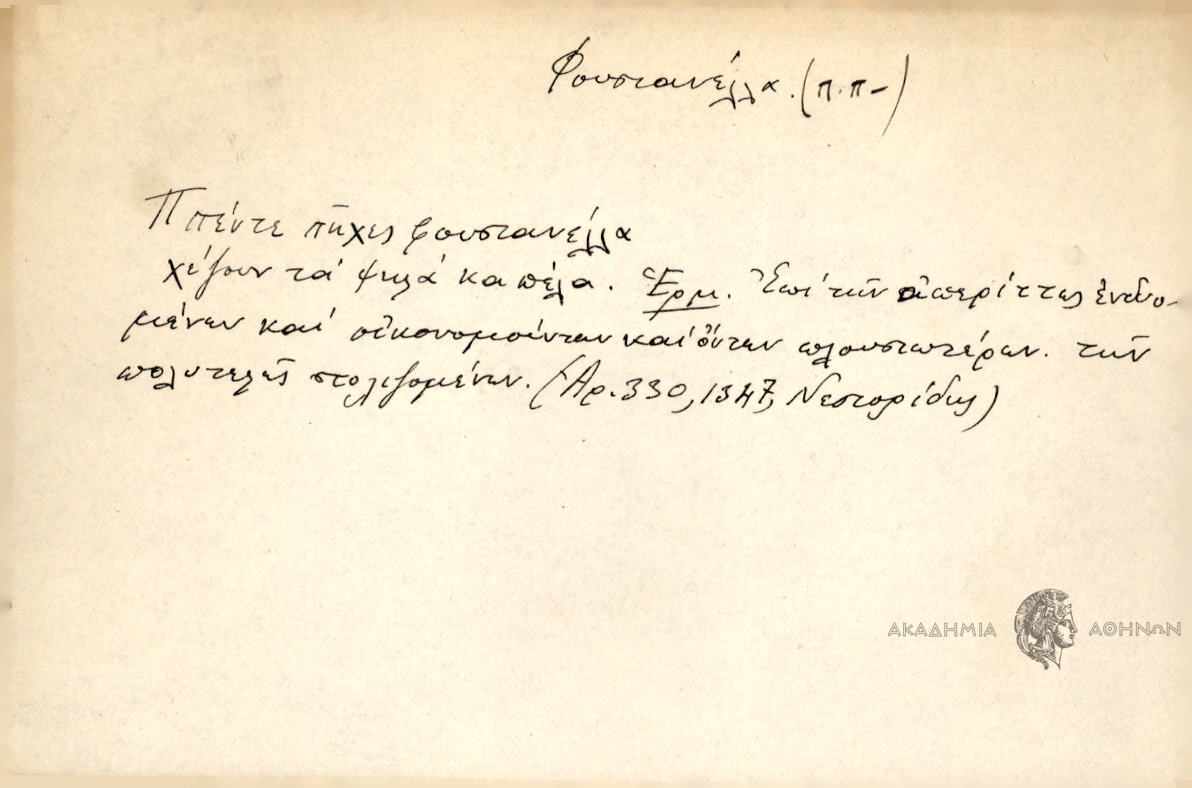 Φουστανέλλα. (π.π-)
Π πέντε πῆχες φουστανέλλα
χέζουν τά ψηλά καπέλα. Ἑρμ. Ἐπί τῶν ἀπερίττως ἐνδυο-
μένων καί οἰκονομούντων καί ὄντων πλουσιωτέρων. τῶν
πολυτελῶς στολιζομένων. (Ἀρ. 330, 1347, Νεστορίδης)
ΑΚΑΔΗΜΙΑ ΑΘΗΝΩΝ